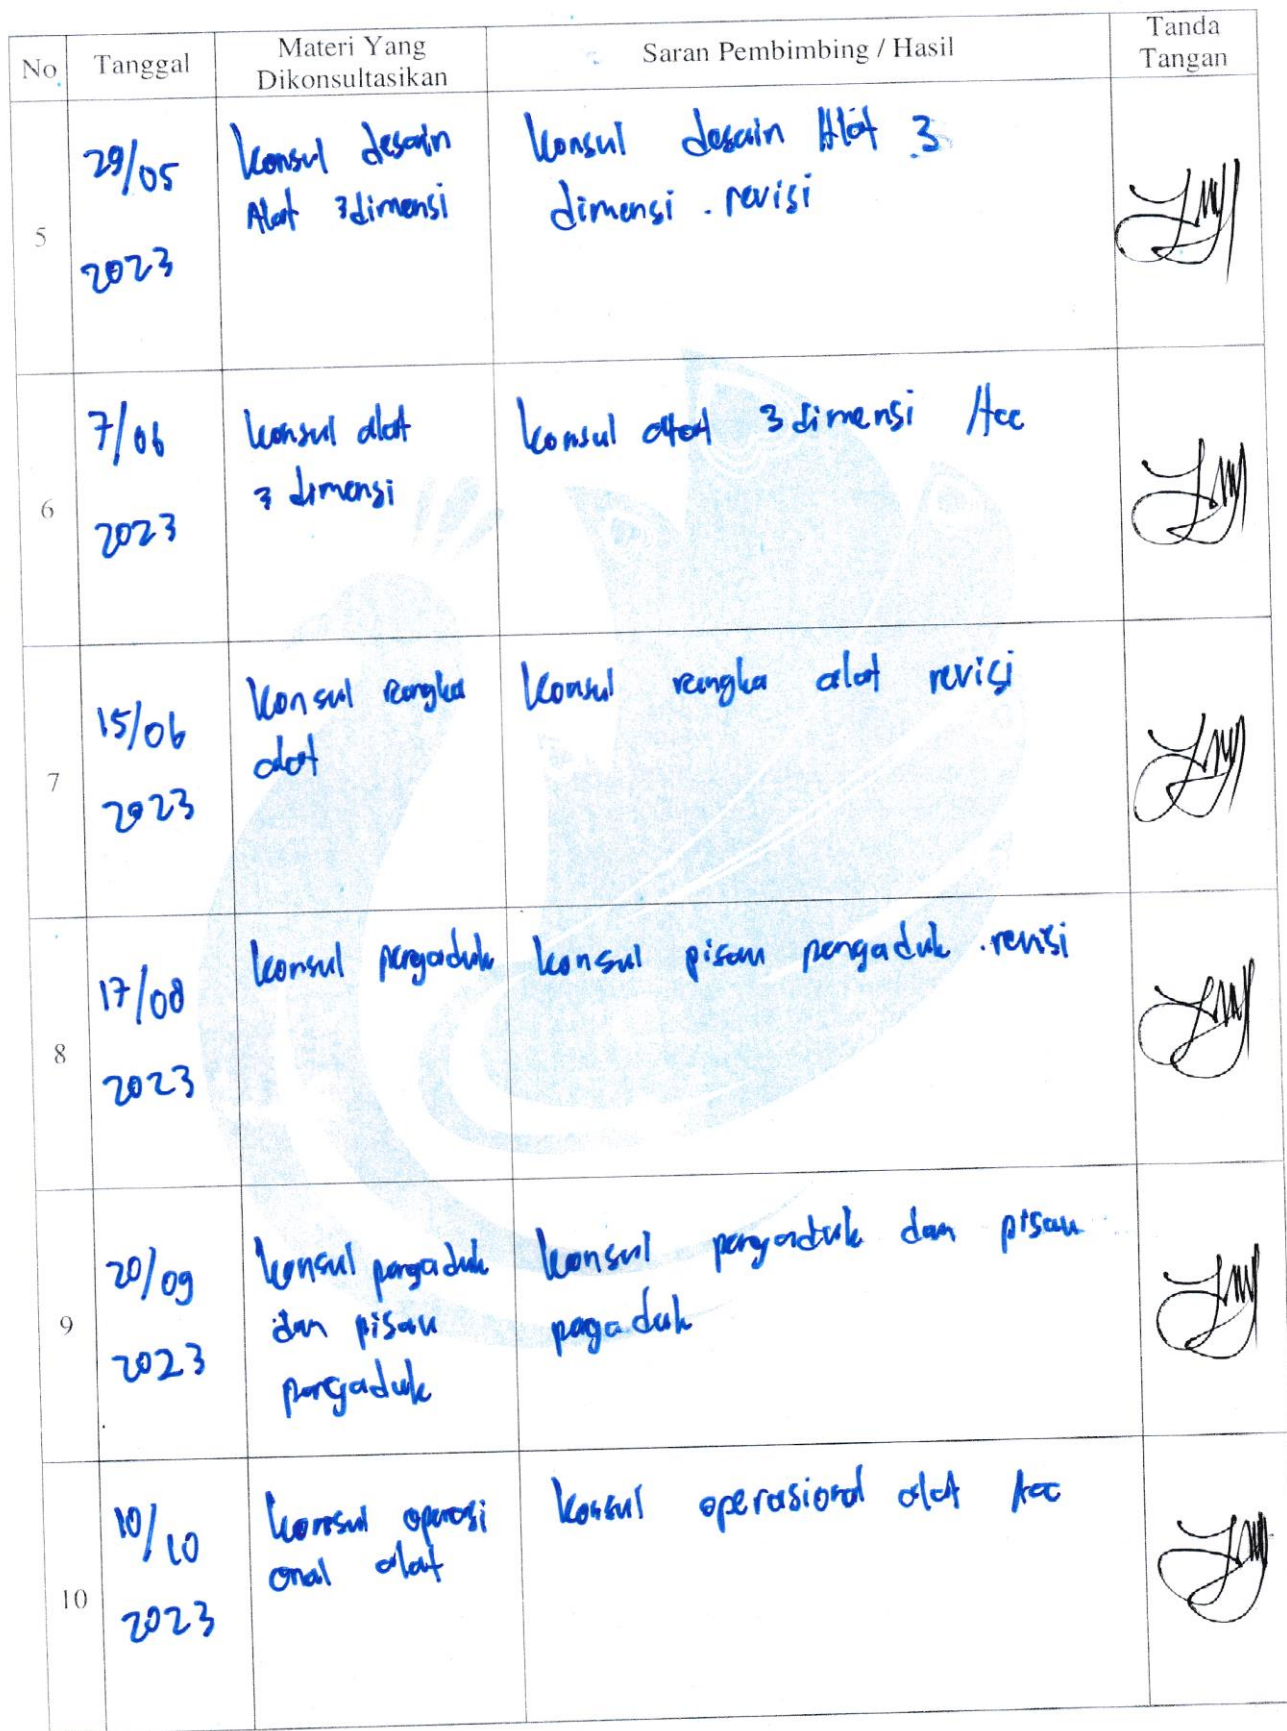 No Tanggal Materi Yang Dikonsultasikan Saran Pembimbing / Hasil Tanda Tangan
5
29/05
2023
Konsul desain
Alat 3dimensi
Konsul desain Alat 3
dimensi . revisi
6
7/06
2023
konsul alat
3 dimensi
konsul alat 3 dimensi Acc
7
15/06
2023
Konsul rangka
alat
Konsul rangka alat revisi
8
17/08
2023
konsul pengaduk
konsul pisau pengaduk . revisi
9
20/09
2023
konsul pengaduk
dan pisau
pengaduk
konsul pengaduk dan pisau
pagaduk
10
10/10
2023
konsul operasi
onal alat
konsul operasional alat Acc